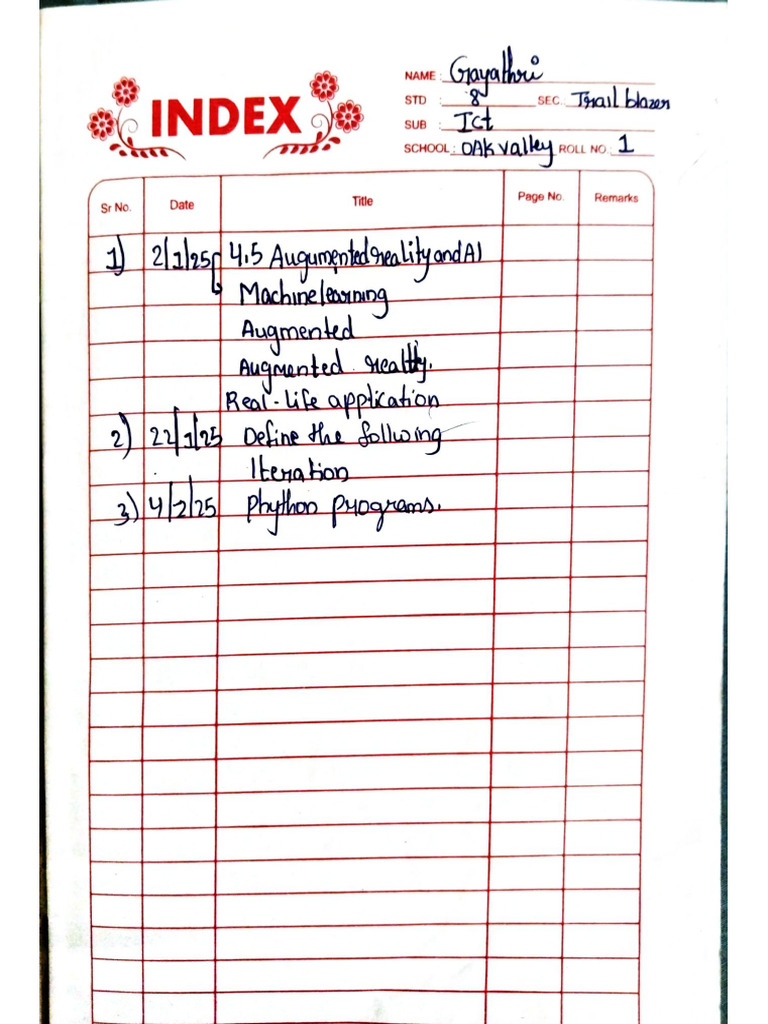 INDEX
NAME : Gayathri
STD : 8 SEC. Trail blazer
SUB : Ict
SCHOOL : OAK valley ROLL NO. : 1
Sr No. Date Title Page No. Remarks
1) 2/1/25 4.5 Augumented reality and AI
Machine learning
Augmented
Augmented reality.
Real-life application
2) 22/1/25 Define the follwing
Iteration
3) 4/2/25 Phython programs.